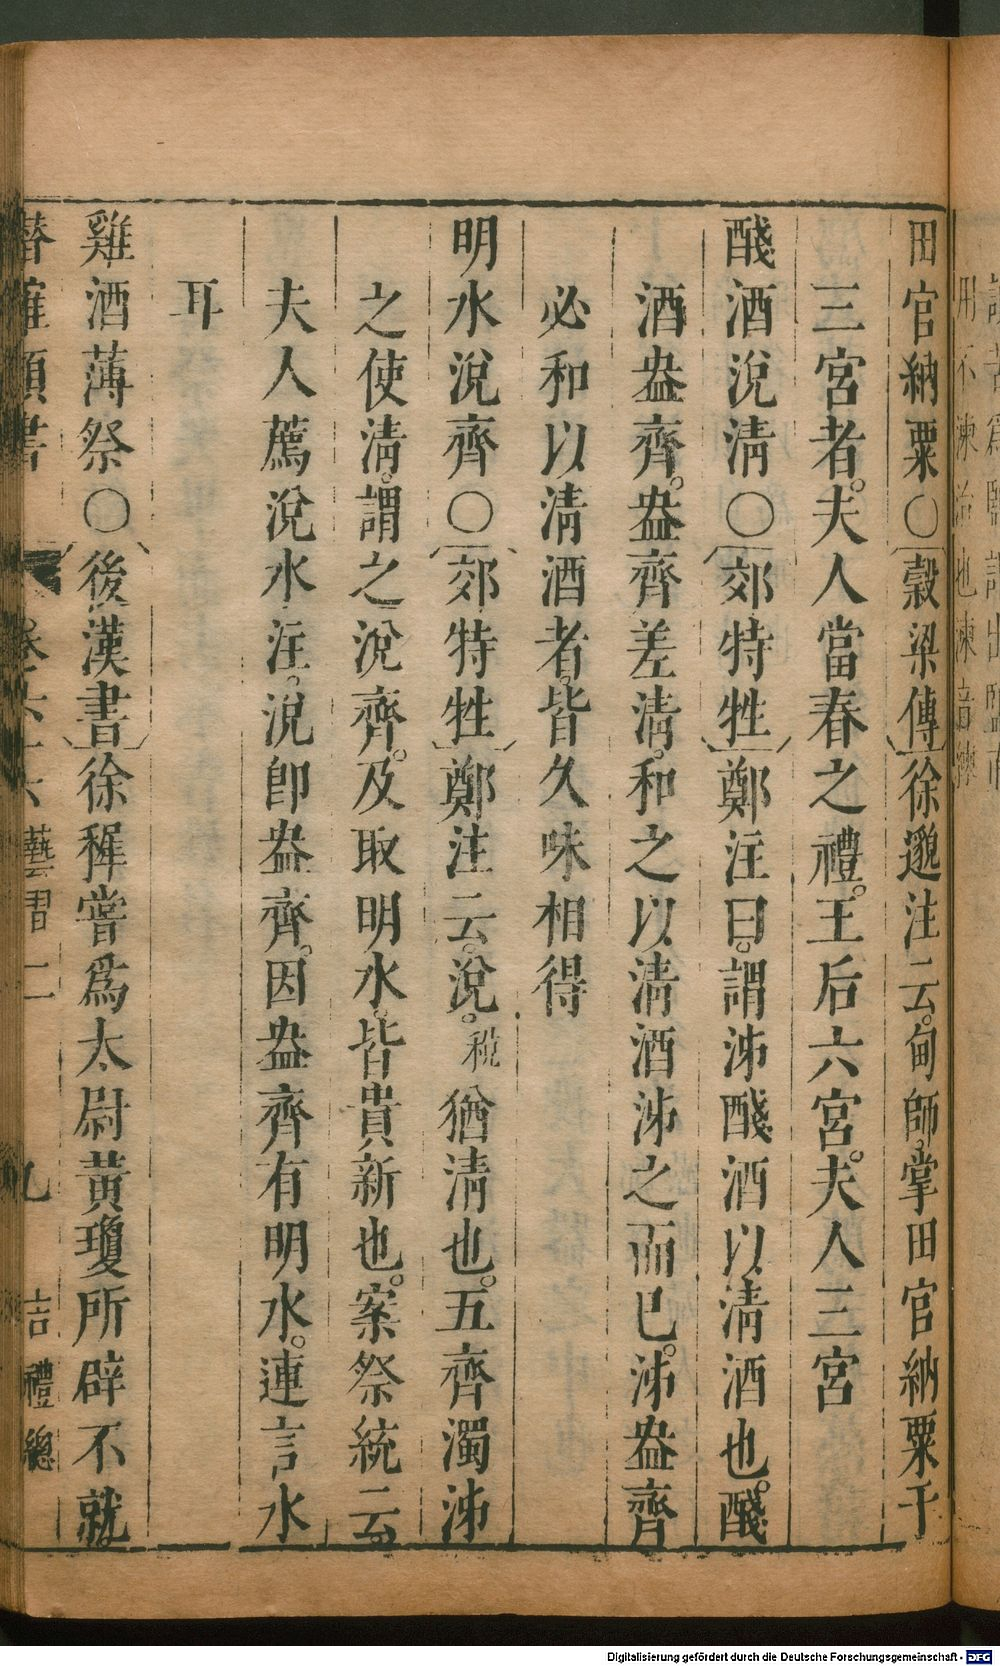 田官納粟○穀梁傳徐邈注云。甸師。掌田官納粟于
三宮者。夫人當春之禮。王后六宮。夫人三宮
醆酒涗清○郊特牲鄭注曰。謂泲醆酒以清酒也。醆
酒盎齊。盎齊差清。和之以清酒泲之而已。泲盎齊
必和以清酒者。皆久味相得
明水涗齊○郊特牲鄭注云。涗。稅猶清也。五齊濁泲
之使清。謂之涗齊。及取明水。皆貴新也。案祭統云。
夫人薦涗水注。涗卽盎齊。因盎齊有明水。連言水
耳
雞酒薄祭○後漢書徐穉嘗爲太尉黃瓊所辟不就。
類書
卷
藝習二
九
吉禮總
Digitalisierung gefördert durch die Deutsche Forschungsgemeinschaft - DFG